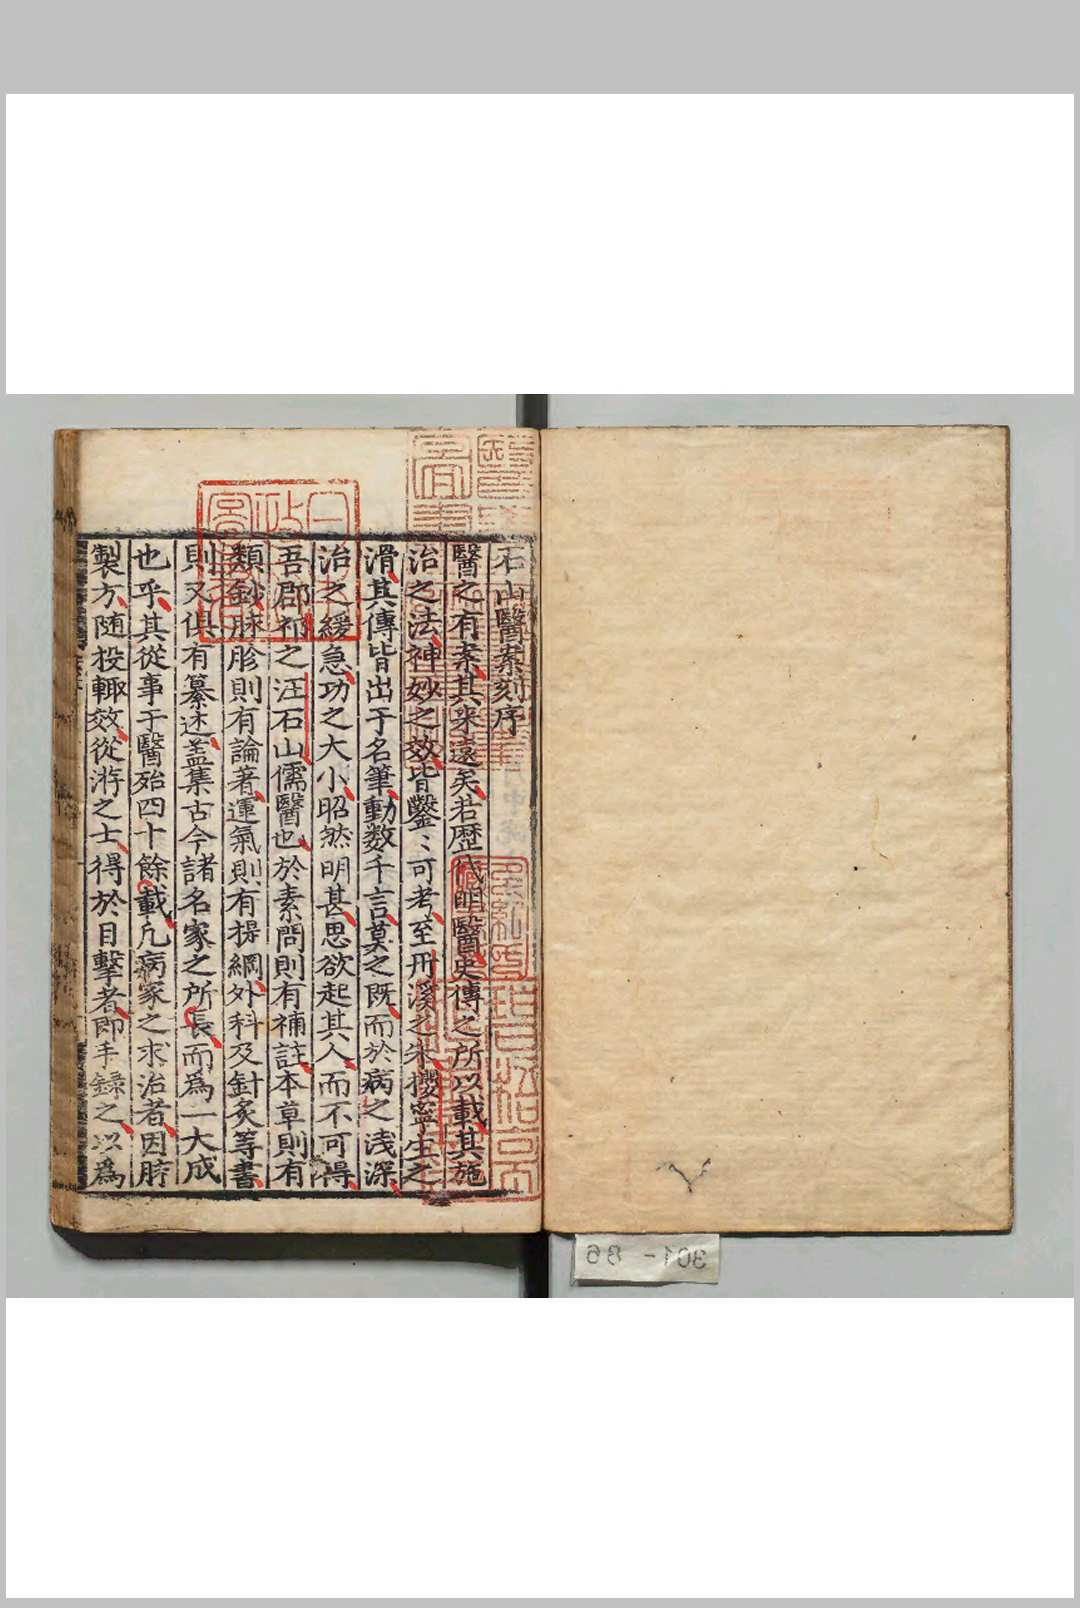 石山醫案刻序
醫之有案其來遠矣若歷代明醫史傳之所以載其施
治之法神妙之效皆鑿〻可考至丹溪之朱攖寧生之
滑其傳皆出于名筆動數千言莫之既而於病之淺深
治之緩急功之大小昭然明甚思欲起其人而不可得
吾郡祁之汪石山儒醫也於素問則有補註本草則有
類鈔脉胗則有論著運氣則有提綱外科及針灸等書
則又俱有纂述盖集古今諸名家之所長而爲一大成
也乎其從事于醫殆四十餘載凢病家之求治者因脉
製方随投輙效從游之士得於目擊者即手録之以爲
301-86